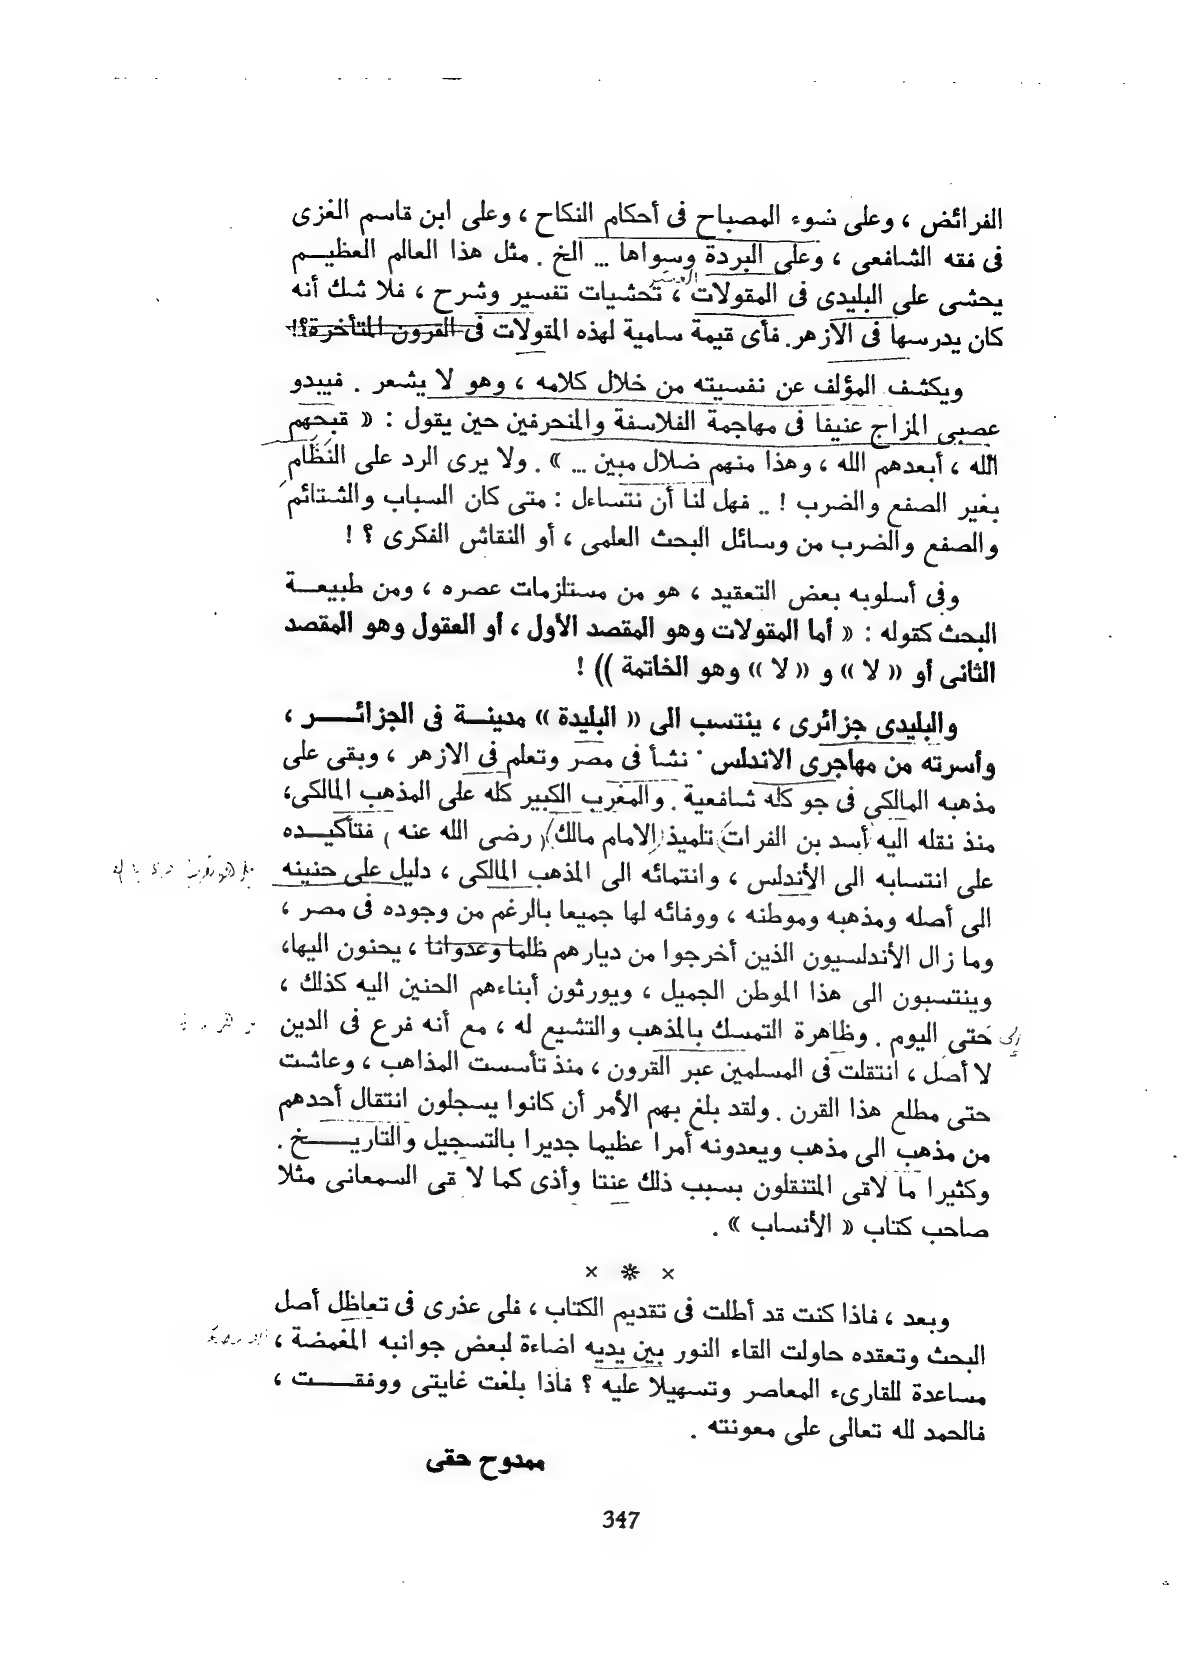 الفرائض ، وعلى ضوء المصباح فى أحكام النكاح ، وعلى ابن قاسم الغزى
فى فقه الشافعى ، وعلى البردة وسواها ... الخ . مثل هذا العالم العظيــم
يحشى على البليدى فى المقولات ، تحشيات تفسير وشرح ، فلا شك أنه
كان يدرسها فى الأزهر. فأى قيمة سامية لهذه المقولات فى القرون المتأخرة؟!
ويكشف المؤلف عن نفسيته من خلال كلامه ، وهو لا يشعر . فيبدو
عصبى المزاج عنيفا فى مهاجمة الفلاسفة والمنحرفين حين يقول : « قبحهم
الله ، أبعدهم الله ، وهذا منهم ضلال مبين ... » . ولا يرى الرد على النَظَّام
بغير الصفع والضرب ! .. فهل لنا أن نتساءل : متى كان السباب والشتائم
والصفع والضرب من وسائل البحث العلمى ، أو النقاش الفكرى ؟ !
وفى أسلوبه بعض التعقيد ، هو من مستلزمات عصره ، ومن طبيعــة
البحث كقوله : « أما المقولات وهو المقصد الأول ، أو العقول وهو المقصد
الثانى أو « لا » و « لا » وهو الخاتمة )) !
والبليدى جزائرى ، ينتسب الى « البليدة » مدينــة فى الجزائــــر ،
وأسرته من مهاجرى الاندلس . نشأ فى مصر وتعلم فى الازهر ، وبقى على
مذهبه المالكى فى جو كله شافعية . والمغرب الكبير كله على المذهب المالكى،
منذ نقله اليه أسد بن الفرات تلميذ الامام مالك ( رضى الله عنه ) فتأكيــده
على انتسابه الى الأندلس ، وانتمائه الى المذهب المالكى ، دليل على حنينه
الى أصله ومذهبه وموطنه ، ووفائه لها جميعا بالرغم من وجوده فى مصر ،
وما زال الأندلسيون الذين أخرجوا من ديارهم ظلما وعدوانا ، يحنون اليها،
وينتسبون الى هذا الموطن الجميل ، ويورثون أبناءهم الحنين اليه كذلك ،
حتى اليوم . وظاهرة التمسك بالمذهب والتشيع له ، مع أنه فرع فى الدين
لا أصل ، انتقلت فى المسلمين عبر القرون ، منذ تأسست المذاهب ، وعاشت
حتى مطلع هذا القرن . ولقد بلغ بهم الأمر أن كانوا يسجلون انتقال أحدهم
من مذهب الى مذهب ويعدونه أمرا عظيما جديرا بالتسجيل والتاريـــــخ .
وكثيرا ما لاقى المتنقلون بسبب ذلك عنتا وأذى كما لا قى السمعانى مثلا
صاحب كتاب « الأنساب » .
× ❊ ×
وبعد ، فاذا كنت قد أطلت فى تقديم الكتاب ، فلى عذرى فى تعاظل أصل
البحث وتعقده حاولت القاء النور بين يديه اضاءة لبعض جوانبه المغمضة ،
مساعدة للقارىء المعاصر وتسهيلا عليه ؟ فاذا بلغت غايتى ووفقــــت ،
فالحمد لله تعالى على معونته .
ممدوح حقى
347